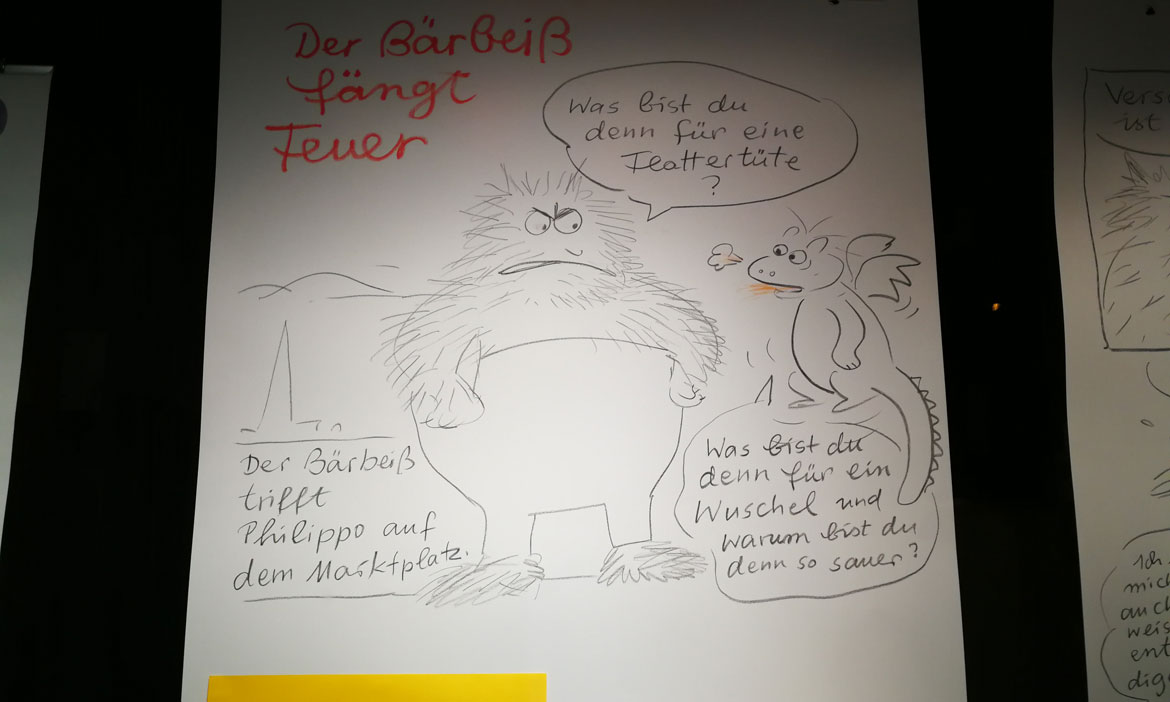 Der Bärbeiß
fängt
Feuer
Was bist du
denn für eine
Flattertüte
?
Der Bärbeiß
trifft
Philippo auf
dem Marktplatz.
Was bist du
denn für ein
Wuschel und
warum bist du
denn so sauer?
ist
Ich
mich
auch